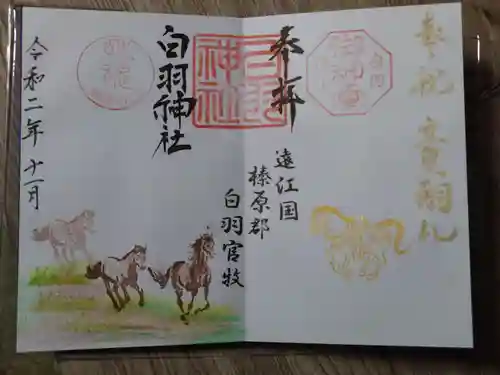 奉祝 立皇嗣礼
奉拝
遠江国
榛原郡
白羽官牧
白羽神社
白羽神社
令和二年十一月